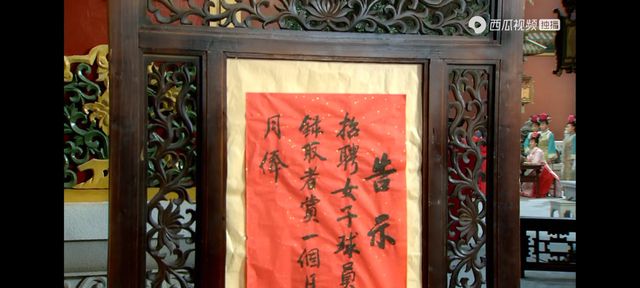 西瓜视频 独播
告示
招聘女子球員
録取者賞一個月
月俸